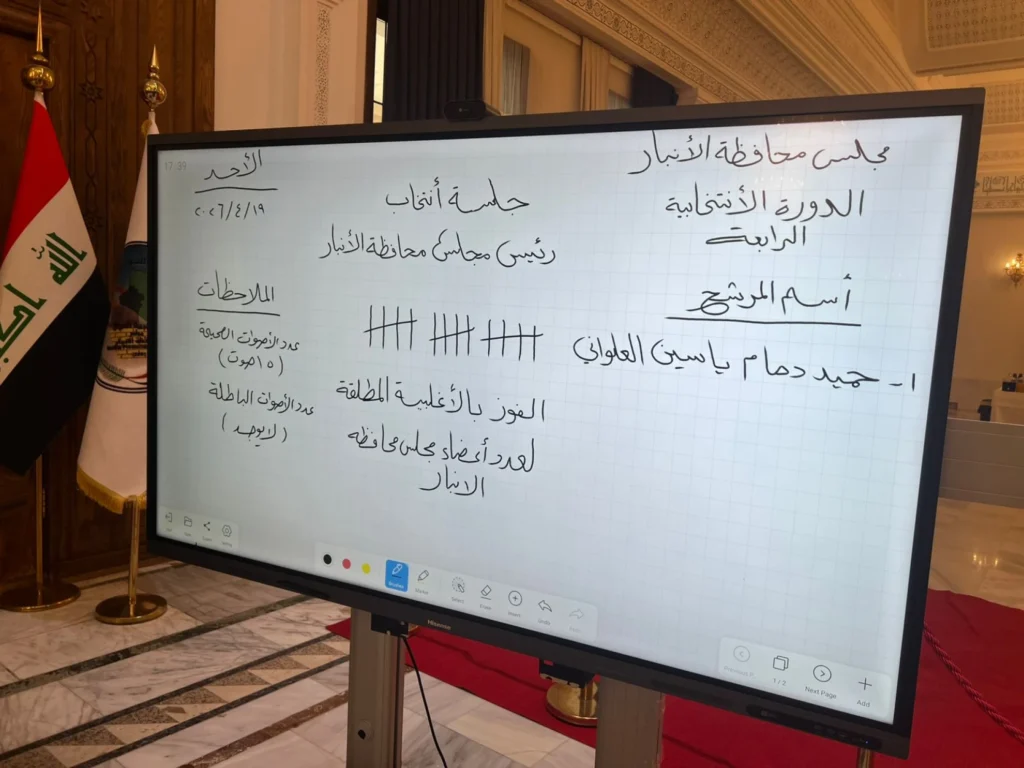 مجلس محافظة الأنبار
الدورة الأنتخابية
الرابعة
جلسة أنتخاب
رئيس مجلس محافظة الأنبار
الأحد
٢٠٢٦/٤/١٩
17:39
أسم المرشح
١- حميد دهام ياسين العلواني
الفوز بالأغلبية المطلقة
لعدد أعضاء مجلس محافظة
الانبار
الملاحظات
عدد الأصوات الصحيحة
(١٥ صوت)
عدد الأصوات الباطلة
(لا يوجد)
الله
Select
Eraser
Undo
Previous P
1 / 2
Next Page
Add
Hisense